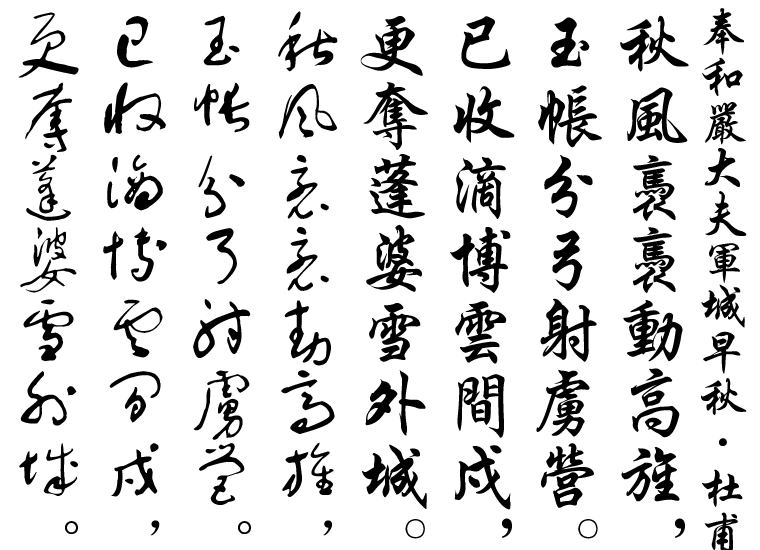 奉和嚴大夫軍城早秋・杜甫
秋風褭褭動高旌,
玉帳分弓射虜營。
已收滴博雲間戍,
更奪蓬婆雪外城。
秋風褭褭動高旌,
玉帳分弓射虜營。
已收滴博雲間戍,
更奪蓬婆雪外城。